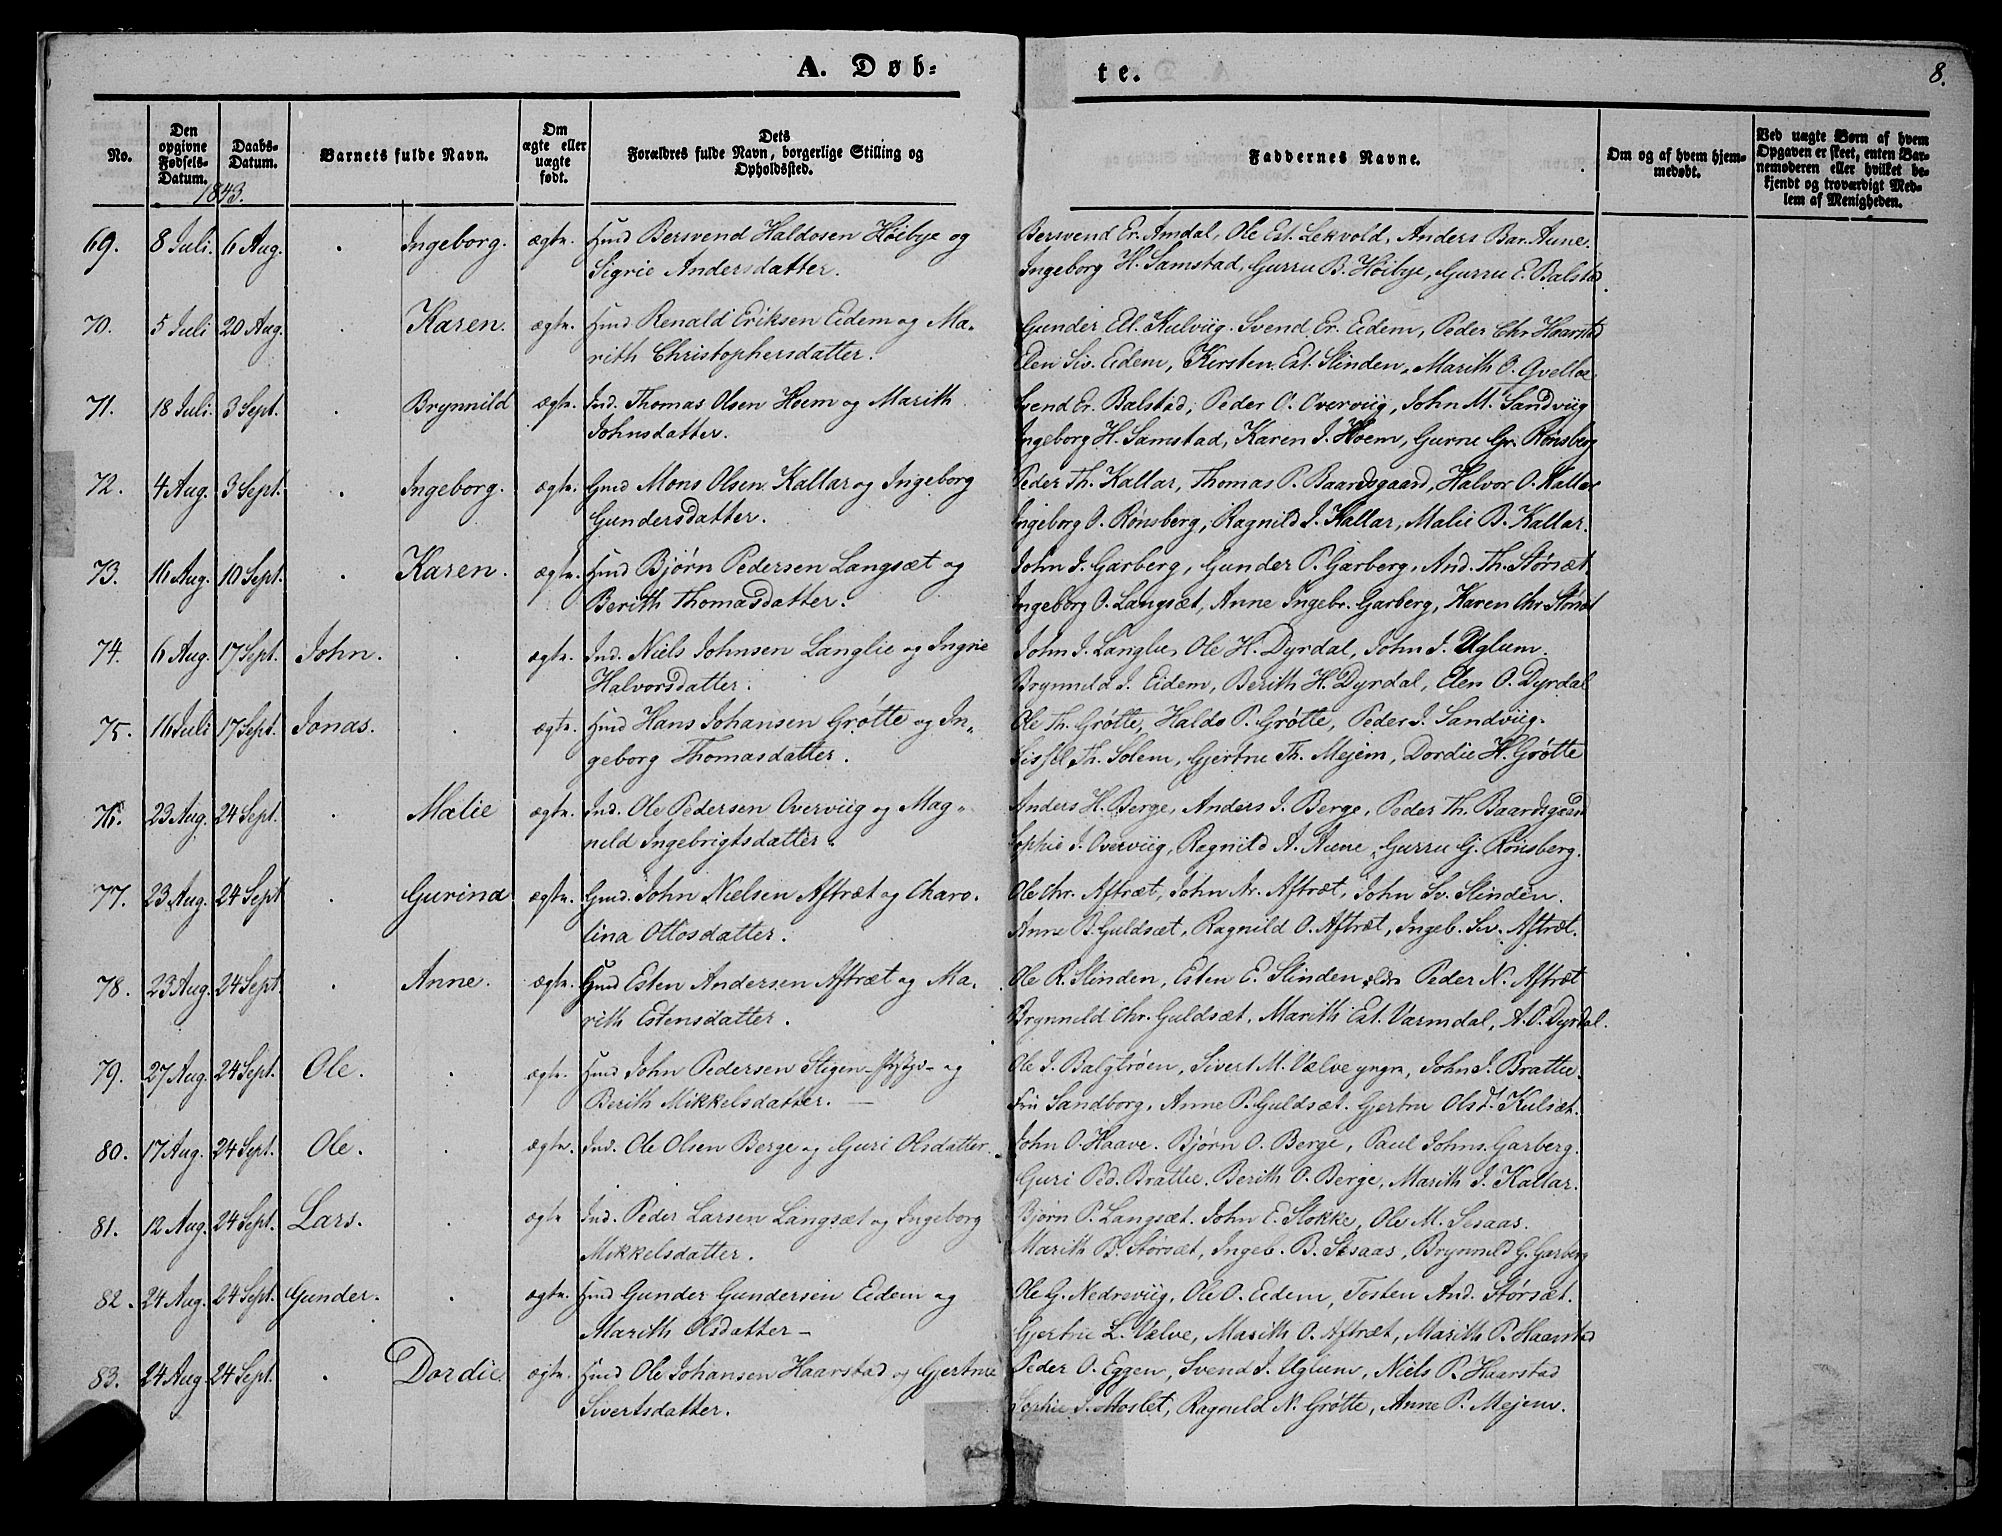 A. Døb-
te.
8.
No.
Den opgivne Fødsels-Datum.
Daabs-Datum.
Barnets fulde Navn.
Om ægte eller uægte født.
Dets Forældres fulde Navn, borgerlige Stilling og Opholdssted.
Faddernes Navne.
Om og af hvem hjemmedøbt.
Ved uægte Børn af hvem Opgaven er skeet, enten Barnemoderen eller hvilket bekjendt og troværdigt Medlem af Menigheden.
1843.
69. 8 Juli. 6 Aug. Ingeborg. ægte. Hmd Bersvend Haldosen Høibye og Bersvend Er. Amdal, Ole Est. Lekvold, Anders Bar. Aune.
Sigrie Andersdatter. Ingeborg H. Samstad, Gurru B. Høibye, Gurru E. Balstad.
70. 5 Juli 20 Aug. Karen. ægte. Hmd Renald Eriksen Eidem og Ma- Gunder El. Kulviig. Svend Er. Eidem, Peder Chr Haarstad
rith Christophersdatter. Elen Siv. Eidem, Kirsten Est. Slinden, Marith O. Qvello.
71. 18 Juli. 3 Sept. Brynnild ægte. Ind. Thomas Olsen Hoem og Marith Svend Er. Balstad, Peder O. Overviig, John M. Sandviig
Johnsdatter. Ingeborg H. Samstad, Karen J. Hoem, Gurne Gr. Rønsberg
72. 4 Aug. 3 Sept. Ingeborg. ægte. Gmd Mons Olsen Kallar og Ingeborg Peder Th. Kallar, Thomas P. Baardsgaard, Halvor O. Kallar
Gundersdatter. Ingeborg O. Rønsberg, Ragnild J. Kallar, Malie B. Kallar.
73. 16 Aug. 10 Sept. Karen. ægte. Hmd Bjørn Pedersen Langsæt og John J. Garberg, Gunder P. Garberg, And. Th. Størsæt.
Berith Thomasdatter. Ingeborg O. Langsæt, Anne Ingebr. Garberg, Karen Chr Størsæt
74. 6 Aug. 17 Sept. John. ægte. Ind. Niels Johnsen Langlie og Ingrie John J. Langlie, Ole H. Dyrdal, John J. Uglum.
Halvorsdatter. Brynnild J. Eidem, Berith H. Dyrdal, Elen O. Dyrdal
75. 16 Juli 17 Sept. Jonas. ægte. Hmd Hans Johansen Grøtte og In- Ole Th. Grøtte, Haldo P. Grøtte, Peder J. Sandviig.
geborg Thomasdatter. Sissel Th. Solem, Gjertrue Th. Mejem, Dordie H. Grøtte
76. 23 Aug. 24 Sept. Malie ægte. Ind. Ole Pedersen Overviig og Mag- Anders H. Berge, Anders J. Berge, Peder Th. Baardsgaard
nild Ingebrigtsdatter. Sophie J. Overviig, Ragnild A. Aune, Gurru G. Rønsberg.
77. 23 Aug. 24 Sept Gurina ægte. Gmd. John Nielsen Aftræt og Charo- Ole Chr. Aftræt, John Nr. Aftræt, John Sv. Slinden.
lina Ottosdatter. Anne B. Guldsæt, Ragnild O. Aftræt, Ingeb. Siv. Aftræt.
78. 23 Aug. 24 Sept Anne. ægte. Gmd Esten Andersen Aftræt og Ma- Ole R. Slinden, Esten E. Slinden, Peder N. Aftræt
rith Estensdatter. Brynnild Chr. Guldsæt, Marith Est. Varmdal, A. O. Dyrdal.
79. 27 Aug. 24 Sept. Ole. ægte. Hmd John Pedersen Stigen og Ole J. Balgtrøen, Sivert M. Vælve yngre, John J. Brattie.
Berith Mikkelsdatter. Fru Sandborg, Anne P. Guldsæt. Gjertru Olsd. Kulsæt.
80. 17 Aug. 24 Sept. Ole. ægte. Ind. Ole Olsen Berge og Guri Olsdatter. John O. Haave. Bjørn O. Berge, Paul Johns. Garberg.
Guri Ped. Brattie. Berith O. Berge, Marith J. Kallar.
81. 12 Aug. 24 Sept. Lars. ægte Ind. Peder Larsen Langsæt og Ingeborg Bjørn P. Langsæt. John E. Stokke, Ole M. Sesaas.
Mikkelsdatter. Marith B. Størsæt, Ingeb. B. Sesaas, Brynnild G. Garberg
82. 24 Aug. 24 Sept. Gunder. ægte. Hmd Gunder Gundersen Eidem og Ole G. Nedreviig, Ole O. Eidem, Tosten And. Størsæt.
Marith Olsdatter Gjertrue L. Vælve, Marith O. Aftræt, Marith P. Haarstad
83. 24 Aug. 24 Sept. Dordie. ægte. Hmd Ole Johansen Haarstad og Gjertrue Peder O. Eggen, Svend J. Uglum, Niels P. Haarstad
Sivertsdatter. Sophie J. Moslet, Ragnild N. Grøtte, Anne P. Mejem.